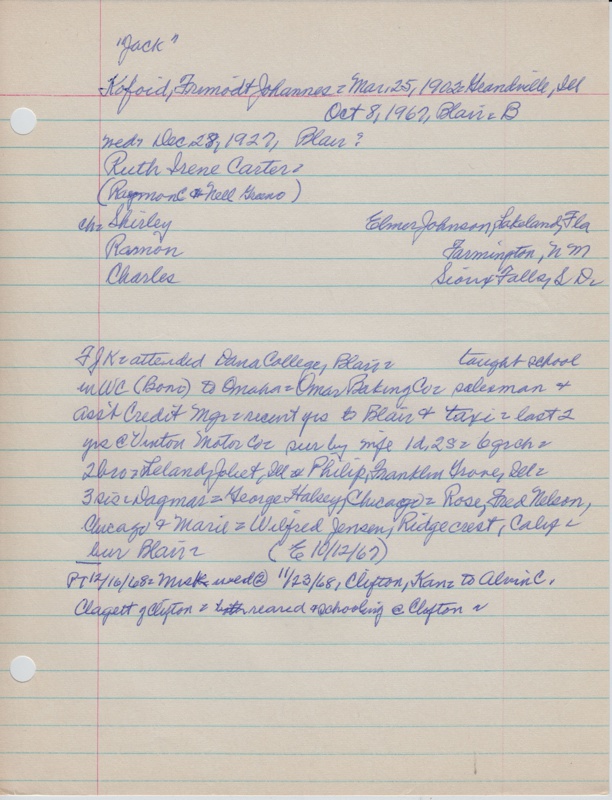 "Jack"
Kofoid, Frimodt Johannes = Mar. 25, 1902 = Grandville, Ill
Oct 8, 1967, Blair = B
wed = Dec. 28, 1927, Blair?
Ruth Irene Carter =
(Raymond & Nell Greeno)
ch = Shirley Elmer Johnson, Lakeland, Fla
Ramon Farmington, N M
Charles Sioux Falls, S D =
FJK = attended Dana College, Blair = taught school
in WC (Bono) to Omaha = Omar Baking Co = salesman &
ass't Credit Mgr = recent yrs to Blair & taxi = last 2
yrs @ Vinton Motor Co = sur by wife 1d, 2s = 6 grch =
2 bro = Leland, Joliet, Ill & Philip, Franklin Grove, Ill =
3 sis = Dagmar = George Halsey, Chicago = Rose, Fred Nelson,
Chicago & Marie = Wilfred Jensen, Ridgecrest, Calif =
bur Blair = (E 10/12/67)
PT 12/16/68 = Mrs K wed @ 11/23/68, Clifton, Kan = to Alvin C.
Clagett of Clifton = both reared & schooling @ Clifton =